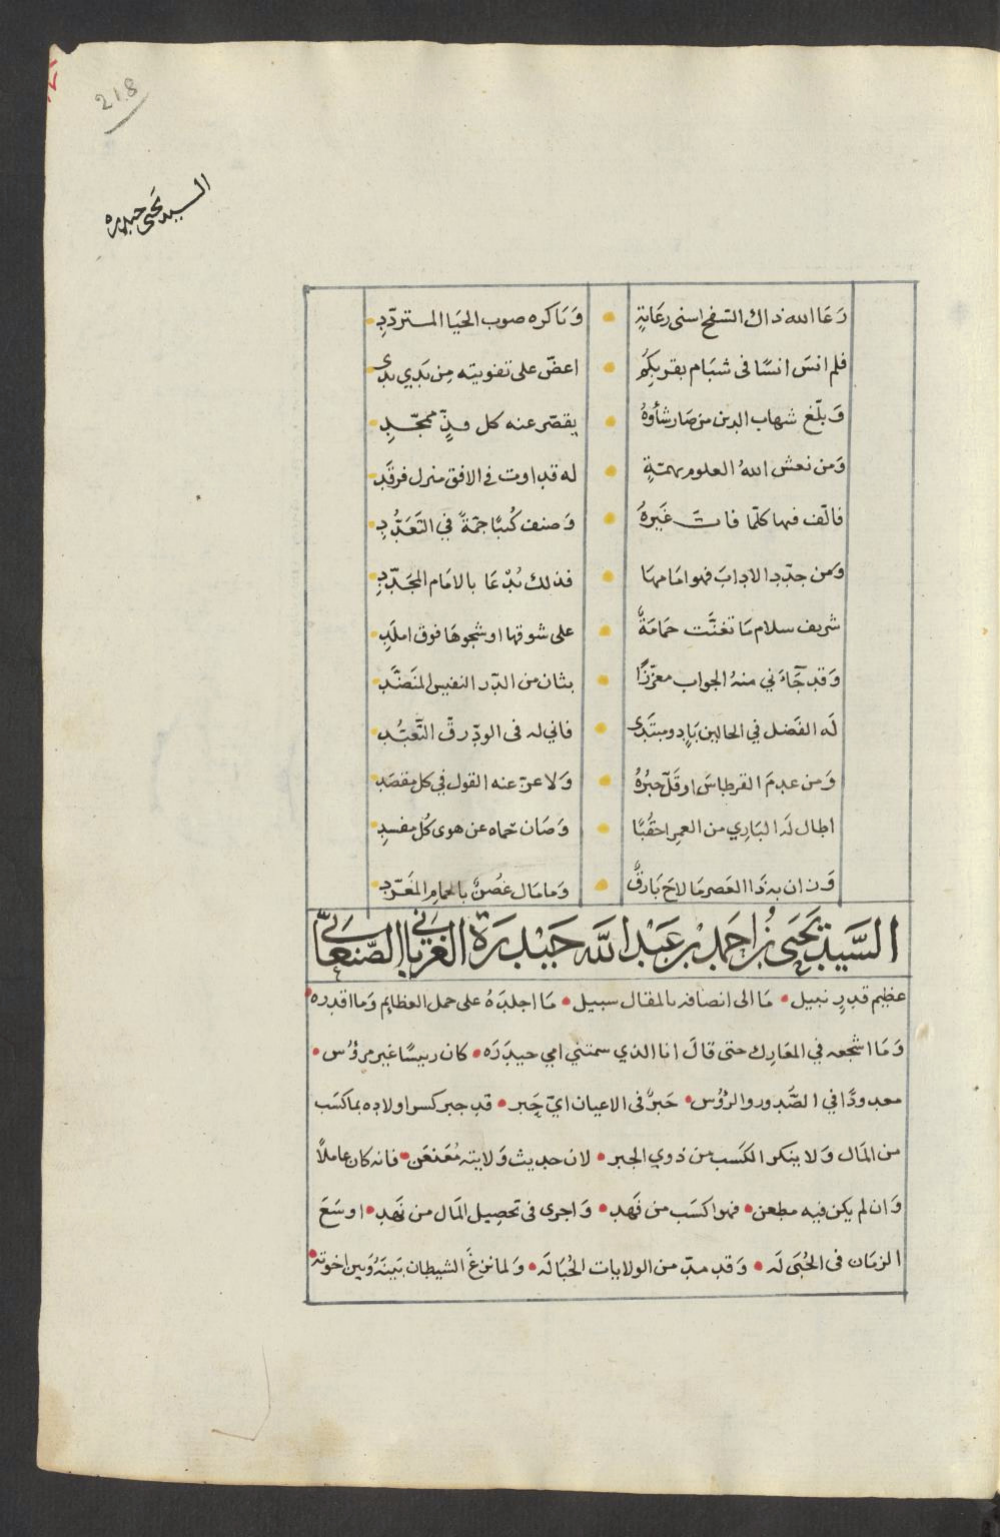 218
السيد يحيى حيدره
رَعَا الله ذاك السّفح اسنى رعَايةٍ • وَبَاكره صوب الحيَا المتردّدِ
فلم انسَ انسًا فى شبَام بقربكِمُ • اعضّ على تفويته مِن يَدِي يدى
وَبلّغ شهاب الدين من صَار شأوهُ • يقصّر عنه كل فذٍّ ممجّدِ
وَمن نعش اللهُ العلوم بهمّةٍ • له قد اوت فى الافق منزل فرقَدِ
فالّف فيها كلّما فات غَيرهُ • وَصنف كُتبًا جمّةً في التَّعَبُّدِ
وَمن جدّد الادابَ فهو امَامهَا • فذلك يُدّعَا بالامَام المجَدّدِ
شريف سلام مَا تغنَّت حمَامَةٌ • على شوقها او شجوهَا فوق املَدِ
وَقد جَآءَني منهُ الجواب معزّزًا • بثان من الدّر النفيس المنَضَّدِ
لَه الفَضل في الحالين بَادٍ ومبتَدى • فاني له فى الودّ رقّ التّعبُّدِ
وَمن عدمَ القرطاسَ او قَلّ حبْرُهُ • وَلا عزّ عنه القول في كل مقصَدِ
اطال لَه البَاري من العمرِ احقُبًا • وَصَان حماه عن هوى كُل مفسدِ
وَزان به ذَا العَصر مَا لاحَ بَارقٌ • وَما مَال غصُنٌ بالحمامِ المغَرّدِ
السَّيِّد يَحيَى بْن اَحمَد بْن عَبْد الله حَيْدرَة الغربَاني الصّنعَانيّ
عظيم قدرٍ نبيل • مَا الى انصافه بالمقال سبيل • مَا اجلدَهُ على حمل العظايم وَما اقدره •
وَمَا اشجعه في المعَارِك حتى قالَ انا الذي سمتني امي حيدَرَه • كان رييسًا غير مرؤس •
معدودًا في الصُّدور والرؤس • حَبرٌ فى الاعيان ايّ حَبر • قد جبر كسر اولاده بما كسَب
من المَال وَلا ينكر الكَسب من ذوي الجبر • لان حديث وَلايته مُعَنعَن • فانه كان عاملًا
وَان لم يكن فيه مطعن • فهو اكسَب من فَهد • وَاجرى فى تحصِيل المَال من نَهد • اوسَعَ
الزمَان فى الحُبَى لَه • وَقد مدّ من الولايات الحُبَالَه • وَلما نزغَ الشيطان بَينَهُ وَبين اخوته •